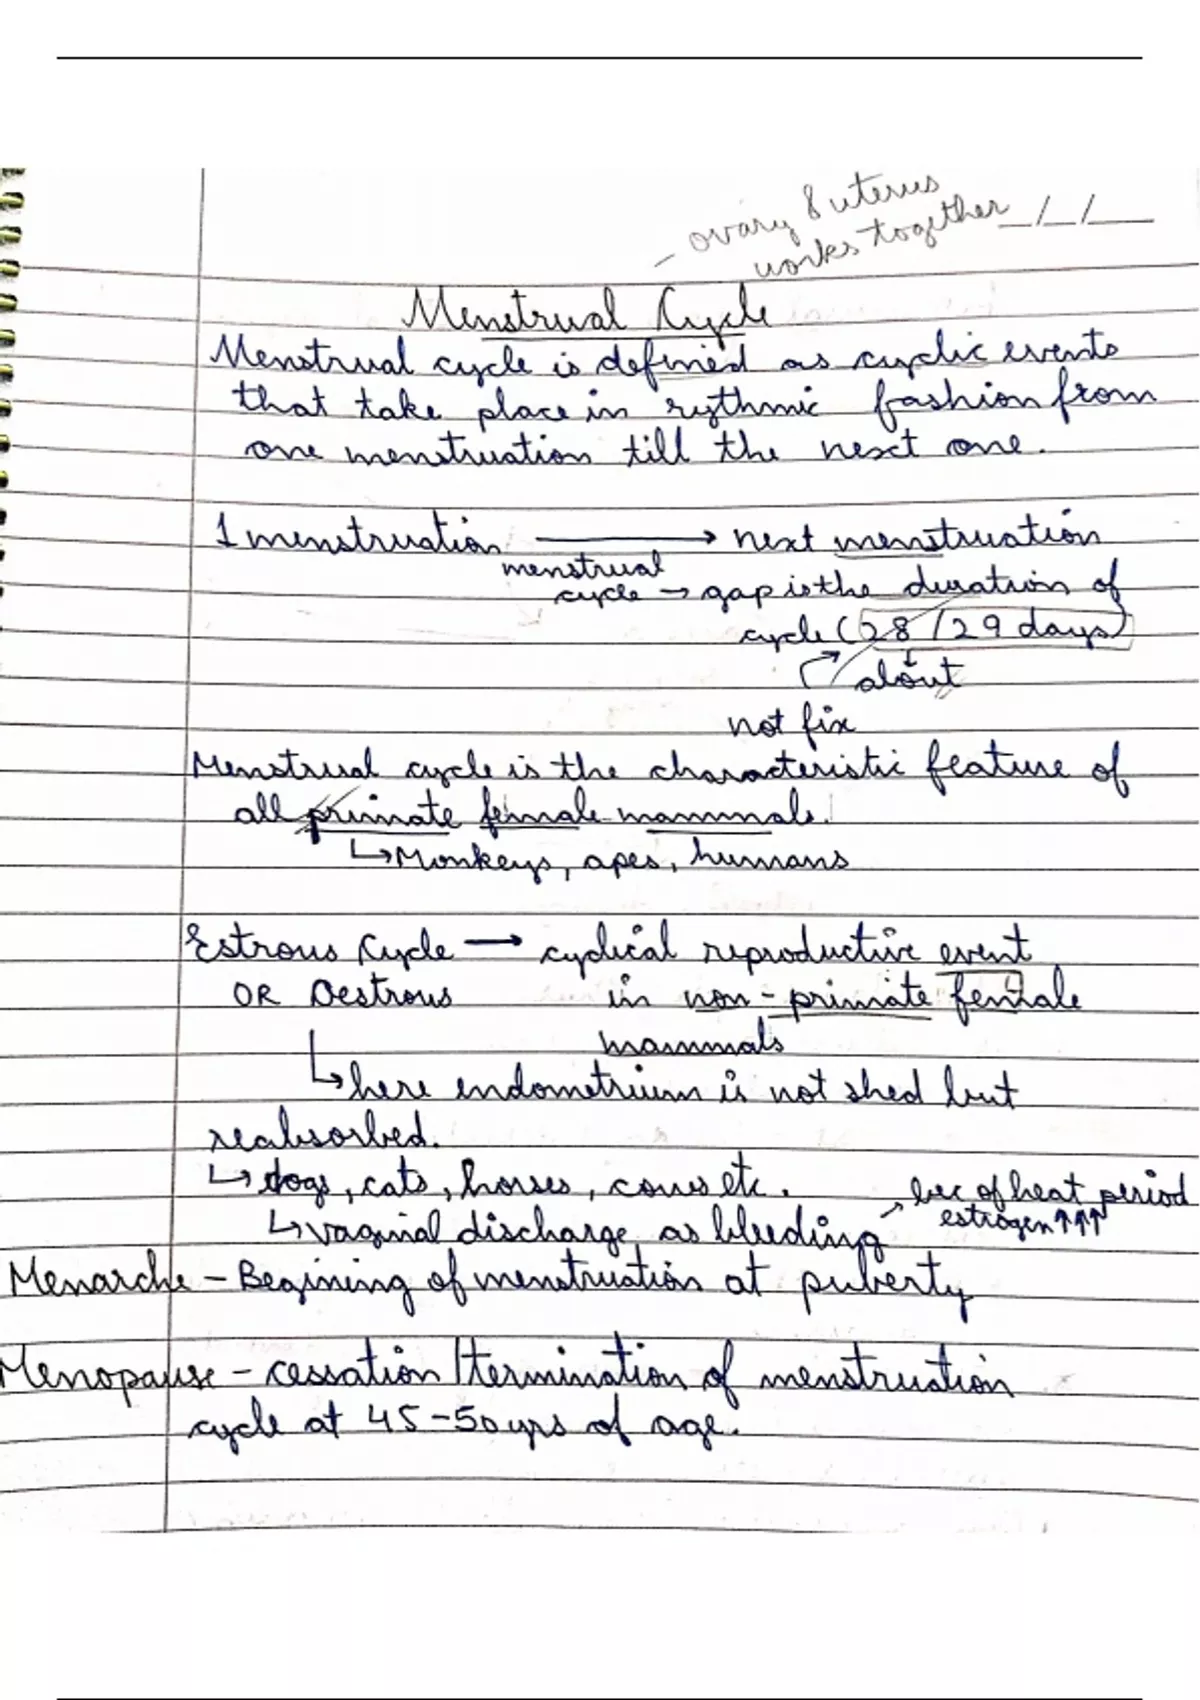 - ovary & uterus
works together_/_/__
Menstrual Cycle
Menstrual cycle is defined as cyclic events
that take place in rythmic fashion from
one menstruation till the next one.
1 menstruation → next menstruation
menstrual
cycle → gap is the duration of
cycle (28/29 days)
about
not fix
Menstrual cycle is the characteristic feature of
all primate female mammals.
↳ Monkeys, apes, humans
Estrous Cycle → cyclical reproductive event
OR Oestrous in non-primate female
mammals
↳ here endometrium is not shed but
reabsorbed.
↳ dogs, cats, horses, cows etc.
bec of heat period
estrogen↑↑↑
↳ vaginal discharge as bleeding
Menarche - Begining of menstruation at puberty
Menopause - cessation/termination of menstruation
cycle at 45-50 yrs of age.